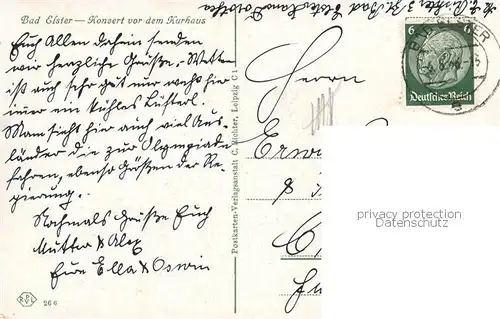 Bad Elster—Konzert vor dem Kurhaus
Euch Allen daheim senden
wir herzliche Grüße. Wetter
ist auch sehr gut nur weht hier
immer ein kühles Lüfterl.
Man sieht hier auch viel Aus,
länder die zur Olympiade
fahren, ebenso Größen der Re,
gierung.
Nochmals Grüße Euch
Mutter & Alex
Eure Ella & Oswin
Postkarten-Verlagsanstalt C. Richter, Leipzig C 1
266
BAD ELSTER
6 6
Deutsches Reich
Herrn
privacy protection
Datenschutz